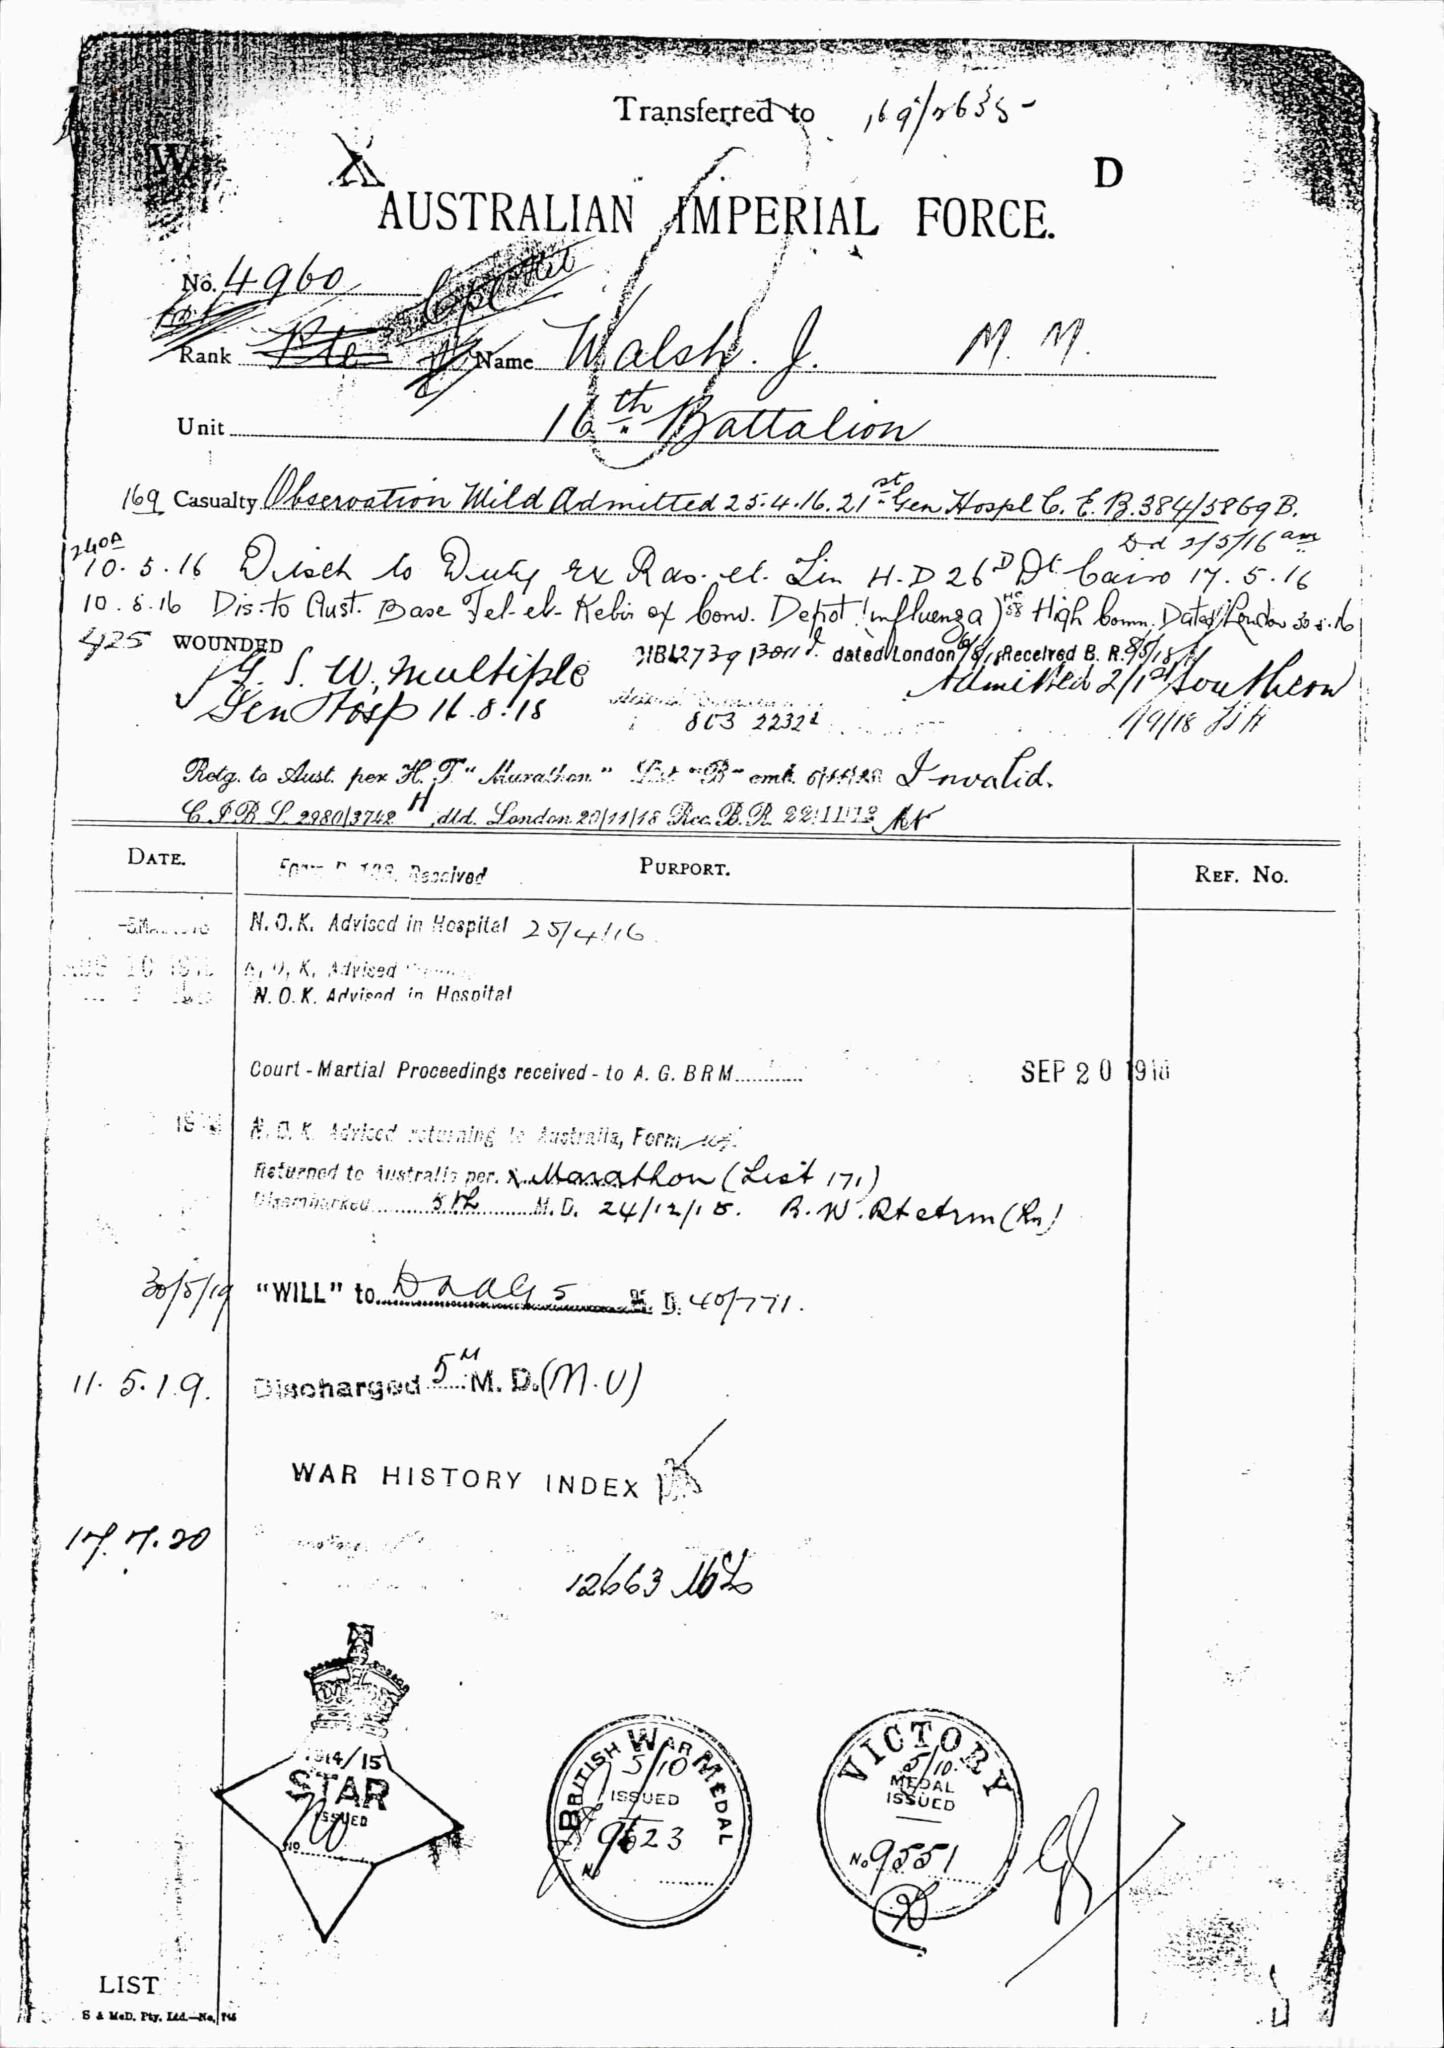 Transferred to
W X D
AUSTRALIAN IMPERIAL FORCE.
No. 4960
Cpl
Rank Pte Name Walsh. J. M. M.
Unit 16th Battalion
169 Casualty Observation Mild Admitted 25.4.16. 21st Gen Hospl C. E.B. 384/5869 B.
2/5/16
240A
10.5.16 Disch to Duty ex Ras-el-Tin H.D 26 Dt Cairo 17.5.16
10.5.16 Dis. to Aust. Base Tel-el-Kebir ex Conv. Depot (influenza) High Comm. Dated London
425 WOUNDED dated London Received B. R.
G. S. W. multiple Admitted 2/1st Southern
Gen Hosp 16.8.18
Retg. to Aust. per H. T "Marathon" List "B" Invalid.
2980/3742 H dtd. London 20/11/18 Rec. B.R. 22/11/18
DATE. Received PURPORT. REF. No.
N.O.K. Advised in Hospital 25/4/16
N.O.K. Advised
N.O.K. Advised in Hospital
Court-Martial Proceedings received - to A. G. B R M SEP 20 191
N.O.K. Advised returning to Australia, Form
Returned to Australia per. Marathon (List 171)
Disembarked 5th M.D. 24/12/18.
30/5/19 "WILL" to 5 M. D. 40/771.
11.5.19. Discharged 5th M. D. (M.U)
WAR HISTORY INDEX
17.7.20
12663
1914/15
STAR
ISSUED
No
No
BRITISH WAR MEDAL
5/10
ISSUED
9623
No
VICTORY
5/10.
MEDAL
ISSUED
No 9551
LIST
S & McD. Pty. Ltd.—No.